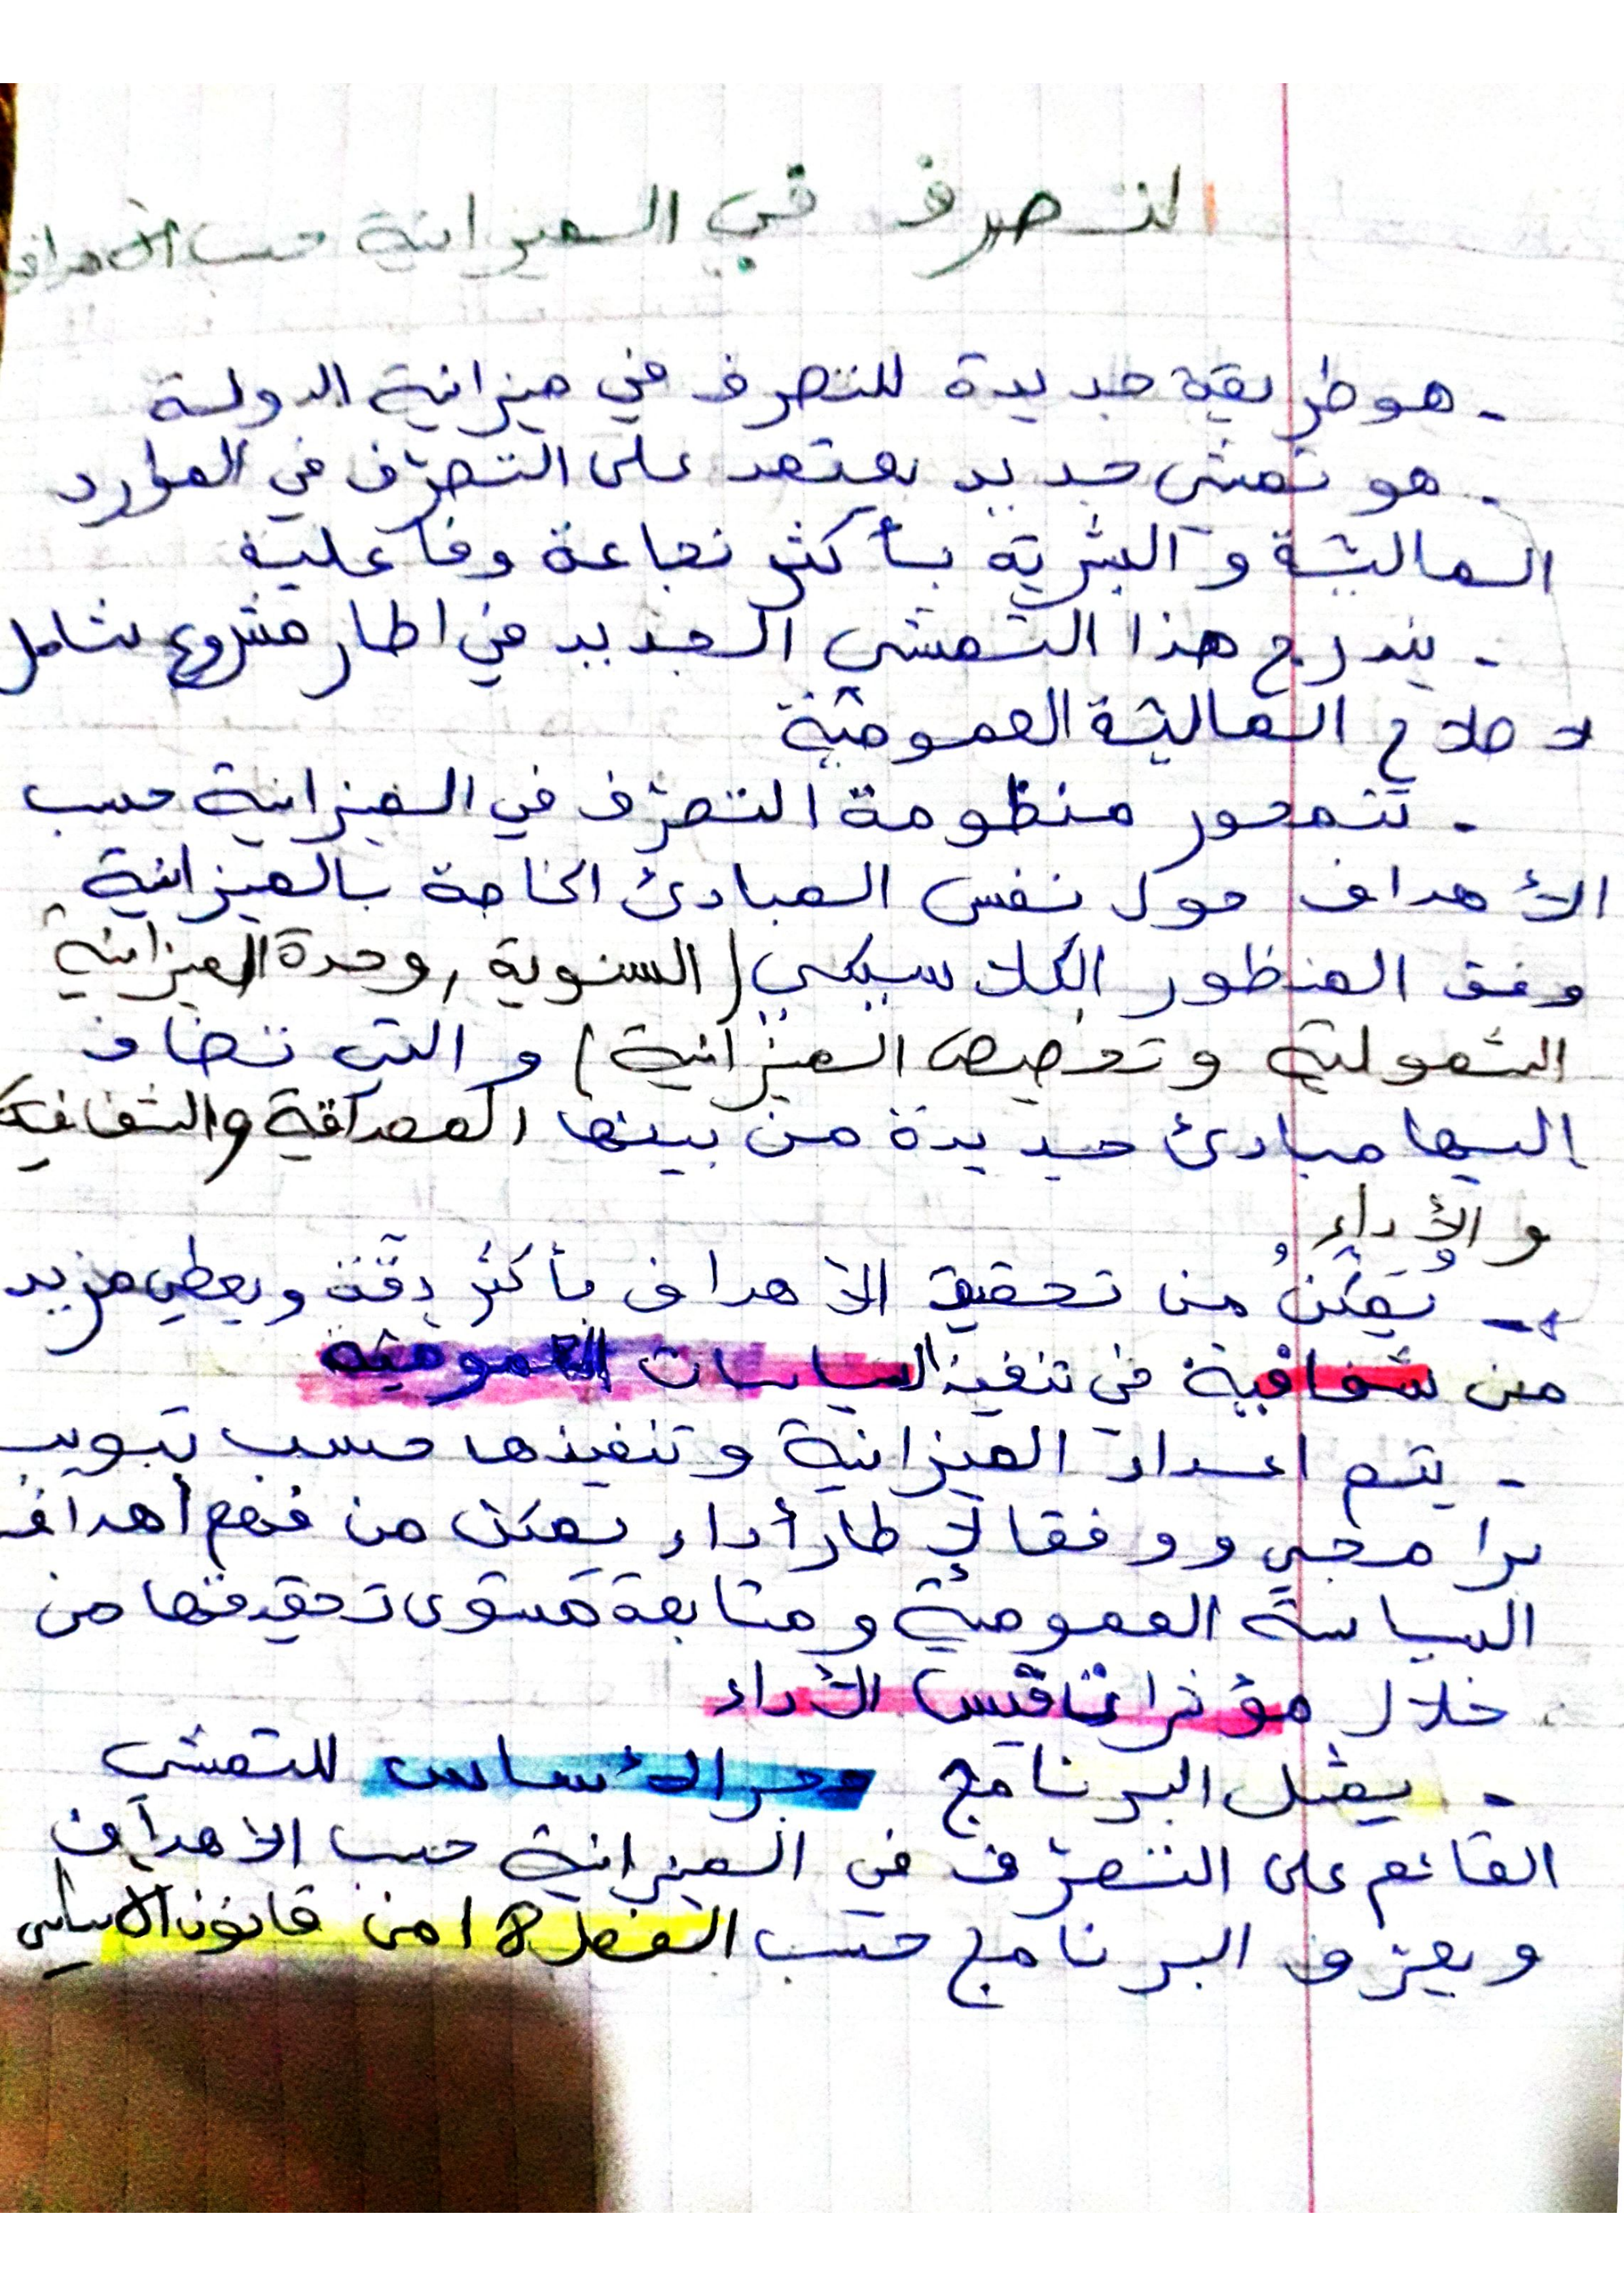 التصرف في الميزانية حسب الأهداف
- هو طريقة جديدة للتصرف في ميزانية الدولة
- هو تمشي جديد يعتمد على التصرّف في الموارد
الماليّة و البشريّة بأكثر نجاعة وفاعلية
- يندرج هذا التمشي الجديد في اطار مشروع شامل
لاصلاح الماليّة العموميّة
- تتمحور منظومة التصرّف في الميزانية حسب
الأهداف حول نفس المبادئ الخاصة بالميزانية
وفق المنظور الكلاسيكي (السنوية , وحدة الميزانية
الشمولية وتخصيص الميزانية) و التي تضاف
اليها مبادئ جديدة من بينها المصداقية والشفافية
و الأداء
- يُمَكِّنُ من تحقيق الاهداف بأكثر دقّة ويعطي مزيد
من شفافية في تنفيذ السياسات العموميّة
- يتم اعداد الميزانية وتنفيذها حسب تبويب
برامجي ووفقا لإطار أداء يمكن من فهم أهداف
السياسة العموميّة ومتابعة مستوى تحقيقها من
خلال مؤشرات تقيس الأداء
- يمثل البرنامج حجر الأساس للتمشي
القائم على التصرّف في الميزانية حسب الاهداف
ويعرّف البرنامج حسب الفصل 18 من قانون الاساسي